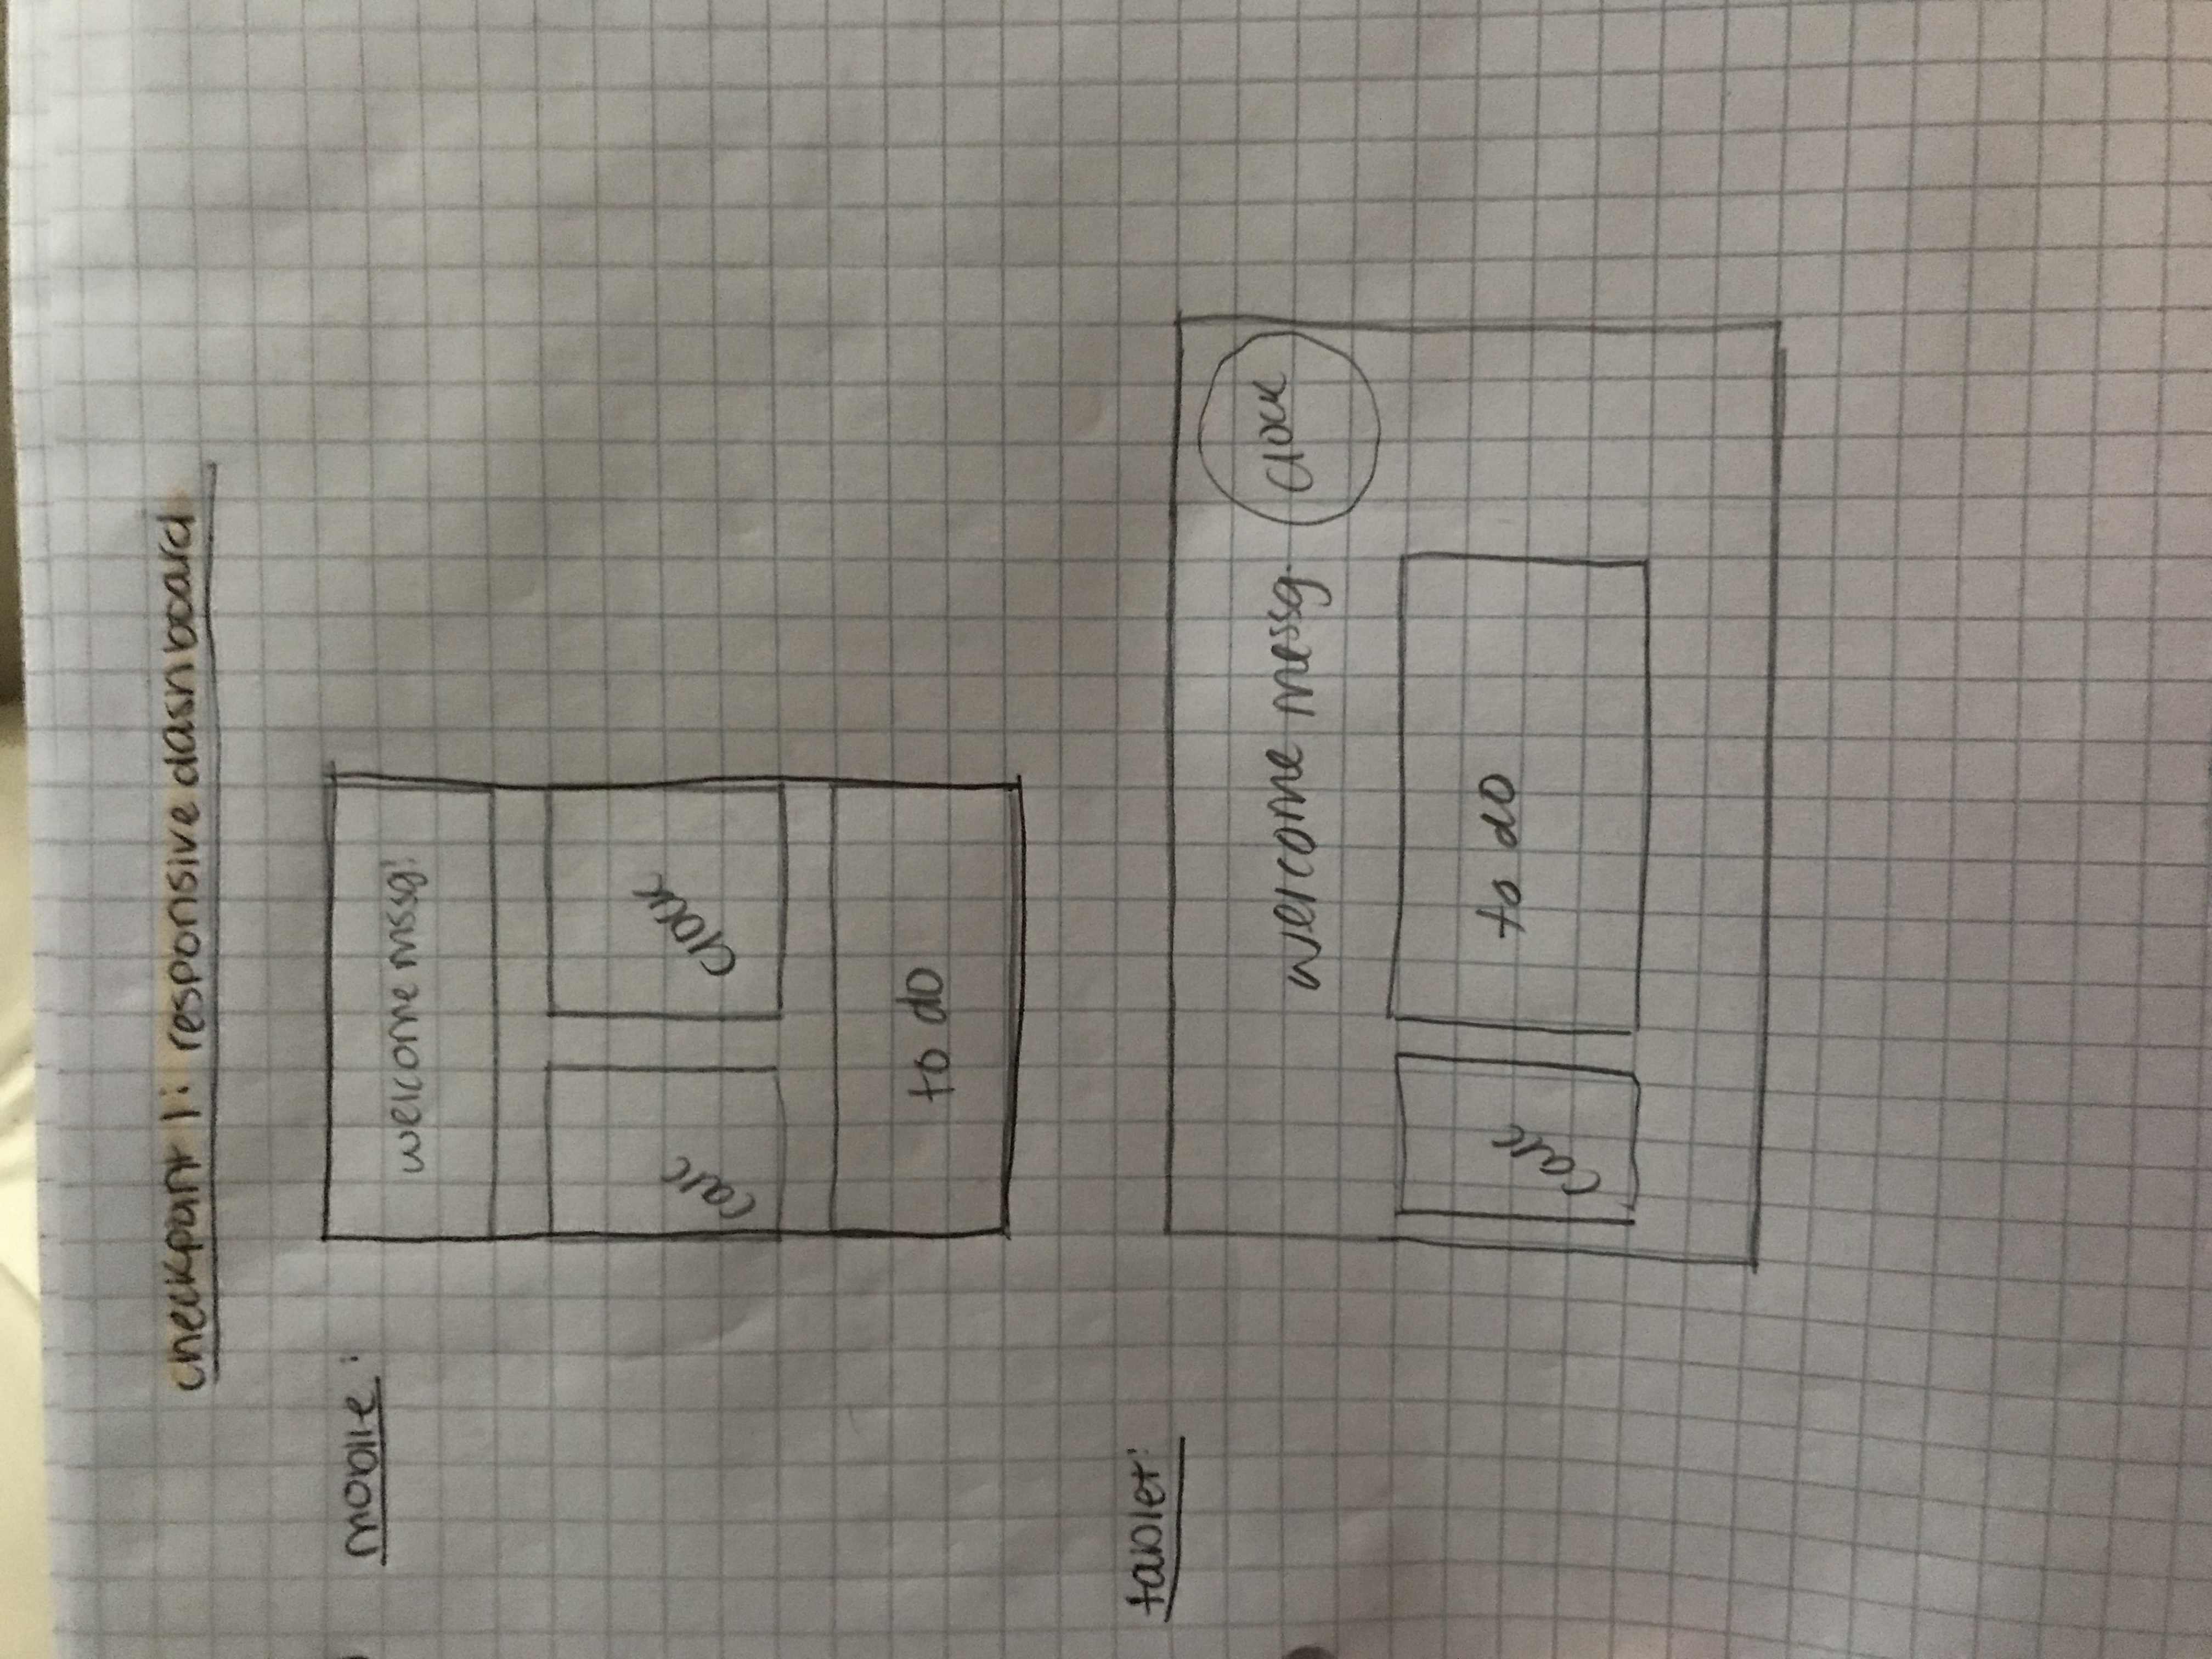 checkpoint 1: responsive dashboard
mobile:
welcome mssg!
calc
clock
to do
tablet:
welcome messg.
clock
calc
to do